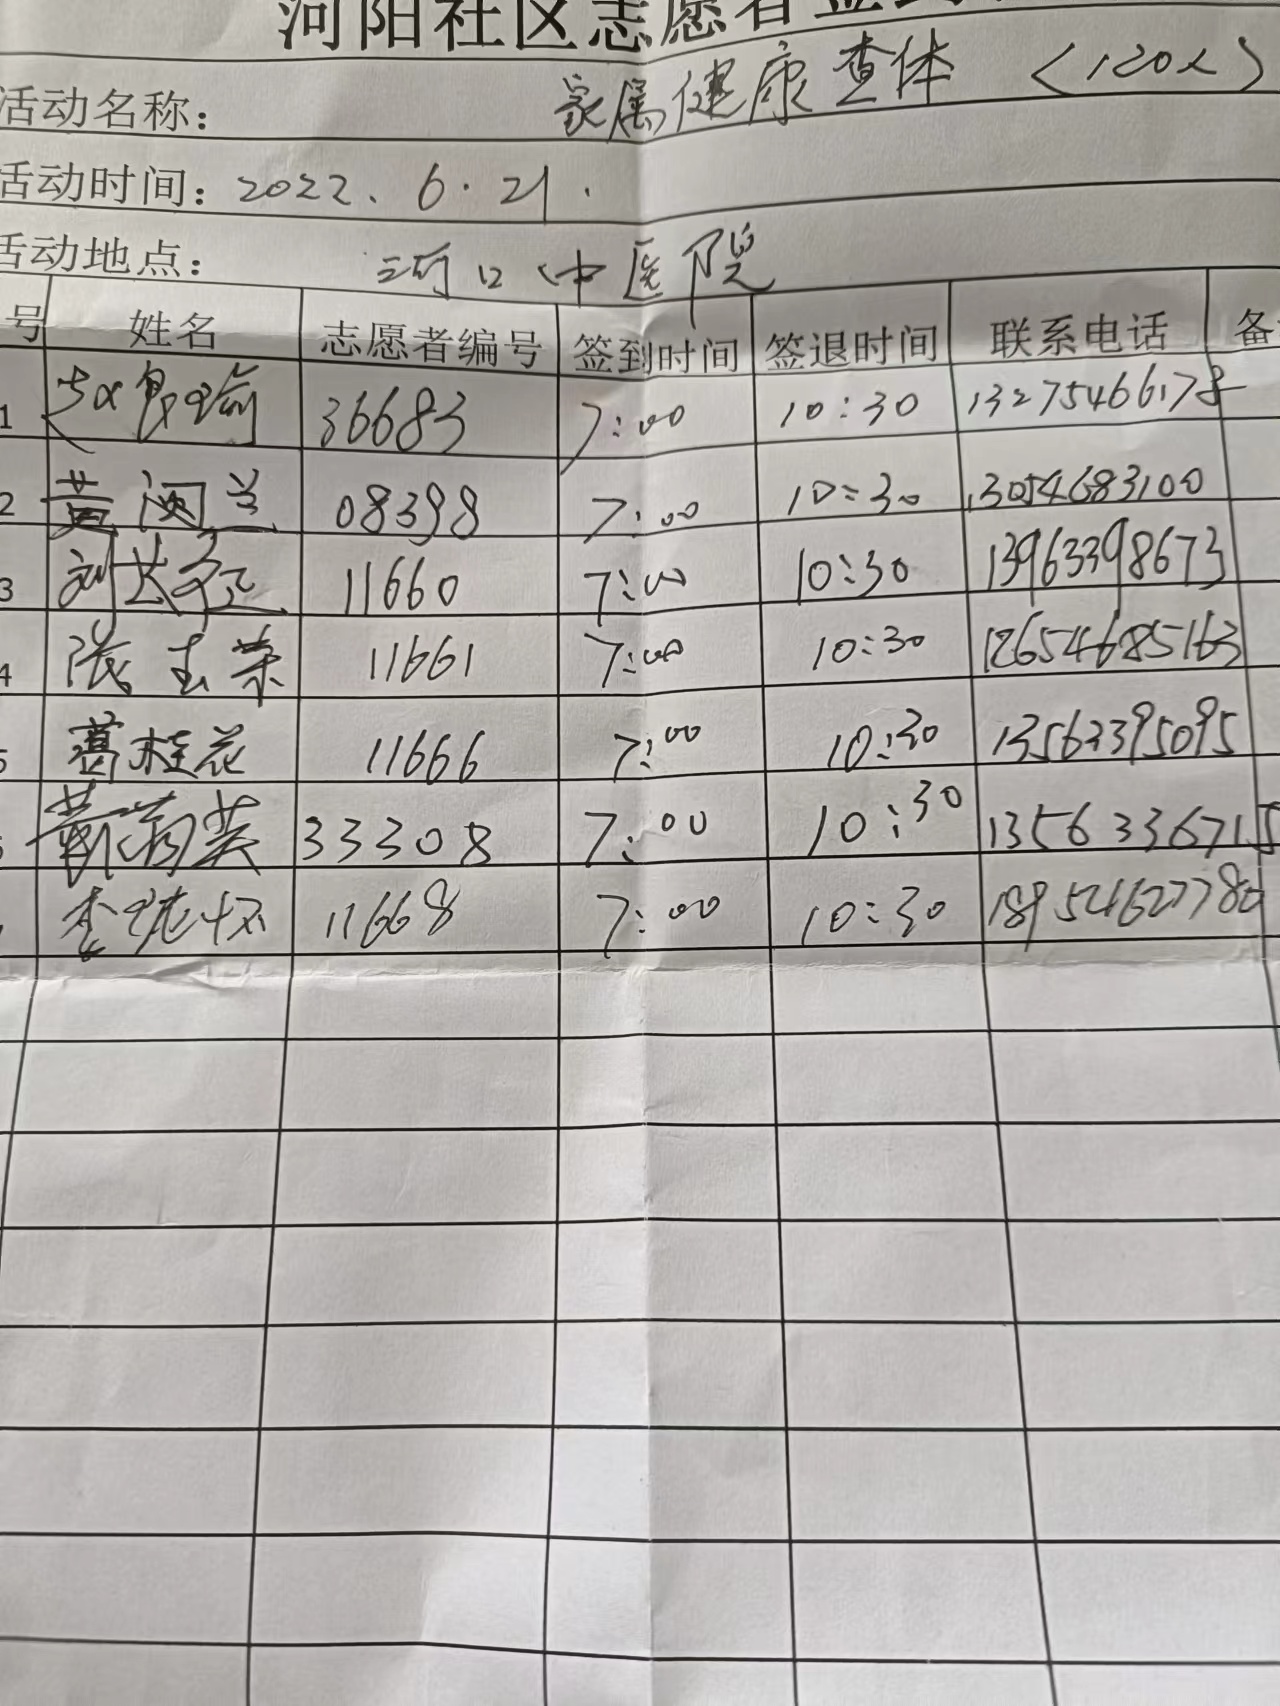 河阳社区志愿者签到
活动名称： 家属健康查体 （120人）
活动时间：2022.6.21.
活动地点： 河口中医院
号 姓名 志愿者编号 签到时间 签退时间 联系电话 备
1 36683 7:00 10:30 13275466178
2 黄闵兰 08398 7:00 10:30 13054683100
3 刘 11660 7:00 10:30 13963398673
4 张玉荣 11661 7:00 10:30 12654685163
5 葛桂花 11666 7:00 10:30 13563395095
靳菊英 33308 7:00 10:30 1356336715
李 11668 7:00 10:30